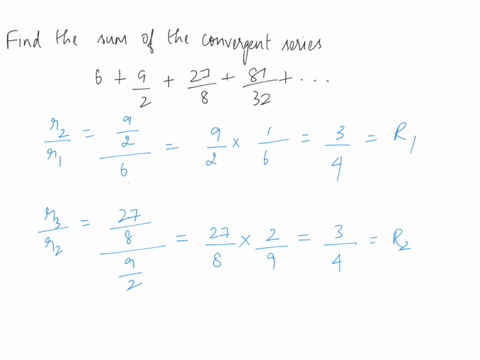 Find the sum of the convergent series
6 + 9/2 + 27/8 + 81/32 + ...
r₂/r₁ = (9/2)/6 = 9/2 × 1/6 = 3/4 = R₁
r₃/r₂ = (27/8)/(9/2) = 27/8 × 2/9 = 3/4 = R₂